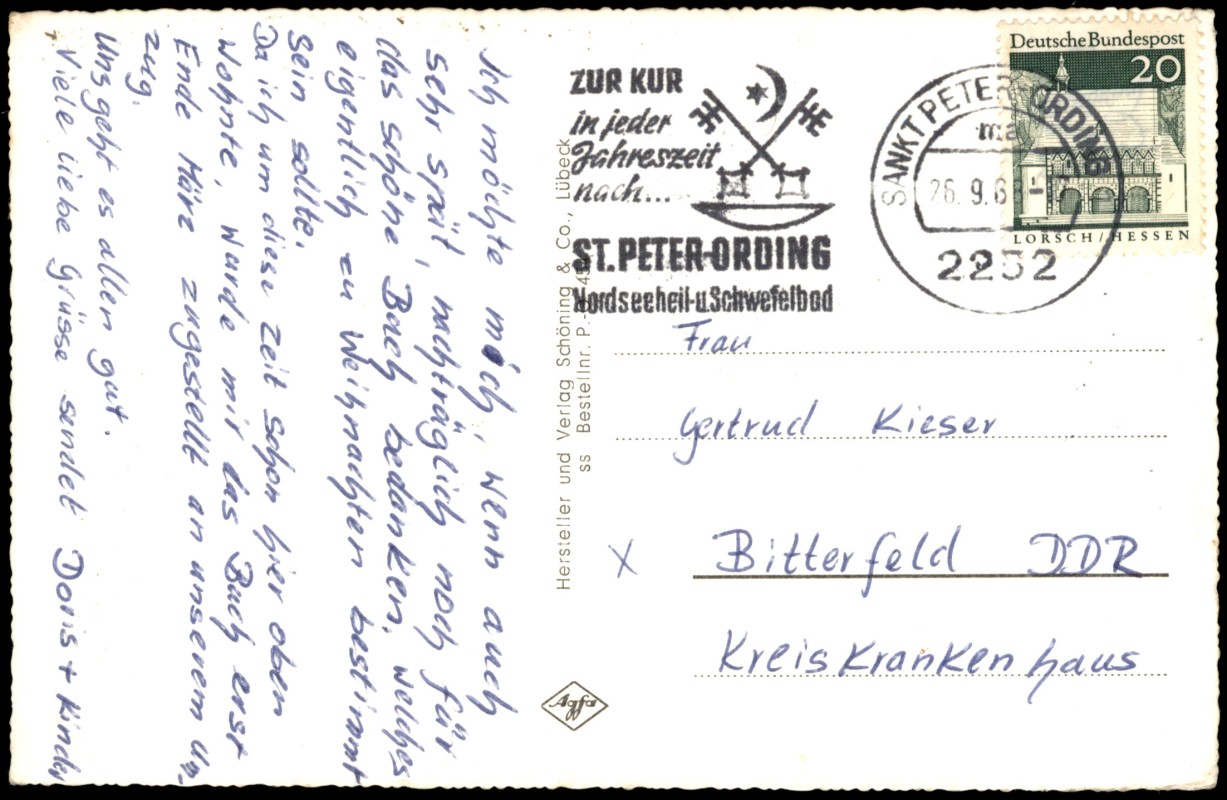 Ich möchte mich, wenn auch
sehr spät, nachträglich noch für
das schöne Buch bedanken, welches
eigentlich zu Weihnachten bestimmt
sein sollte.
Da ich um diese Zeit schon hier oben
wohnte, wurde mir das Buch erst
Ende März zugestellt an unserem Um-
zug.
Uns geht es allen gut.
Viele liebe Grüsse sendet Doris + Kinder
Hersteller und Verlag Schöning & Co., Lübeck
ss Bestellnr. P.
Agfa
ZUR KUR
in jeder
Jahreszeit
nach...
ST. PETER-ORDING
Nordseeheil-u.Schwefelbad
SANKT PETER-ORDING
26.9.6
2252
Deutsche Bundespost
20
LORSCH/HESSEN
Frau
Gertrud Kieser
X Bitterfeld DDR
Kreiskrankenhaus